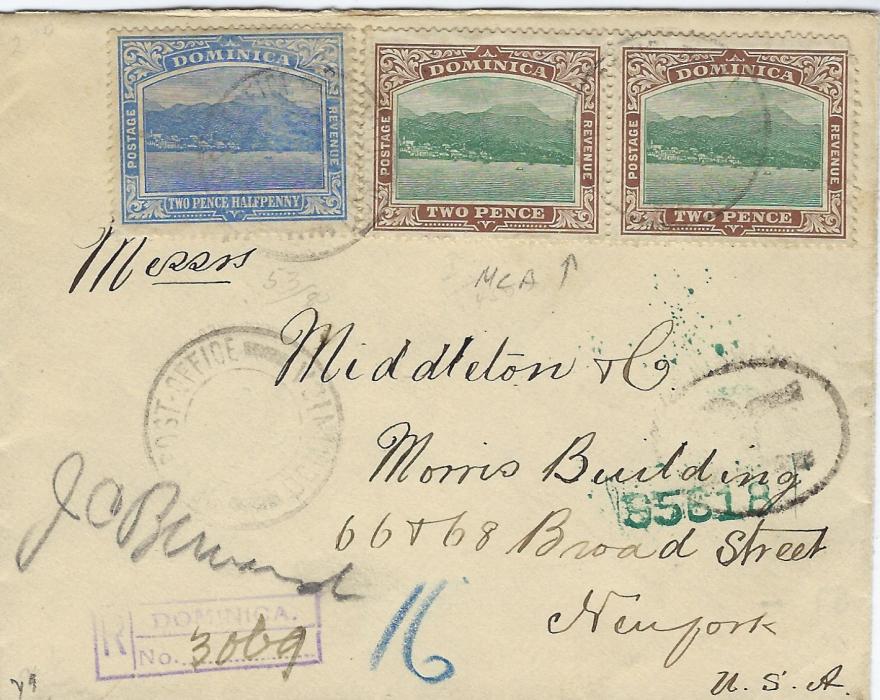 DOMINICA
POSTAGE
REVENUE
TWO PENCE HALFPENNY
DOMINICA
POSTAGE
REVENUE
TWO PENCE
DOMINICA
POSTAGE
REVENUE
TWO PENCE
Messrs
53/
MCA ↑
Middleton & Co
POST-OFFICE
Morris Building
66 & 68 Broad Street
Newyork
U. S. A.
R
DOMINICA.
No. 3069
16